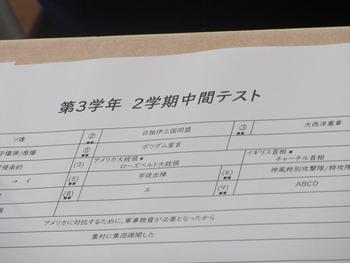 第3学年 2学期中間テスト
ソ連 ② 日独伊三国同盟 ③ 大西洋憲章
子爆弾/原爆 ⑤ ポツダム宣言
侵条約 (3) アメリカ大統領■ ローズベルト大統領 イギリス首相■ チャーチル首相
→ イ (5) 学徒出陣 (6) 神風特別攻撃隊/特攻
(8) エ (9) ABCD
アメリカに対抗するために、軍事物資が必要となったから
農村に集団疎開した